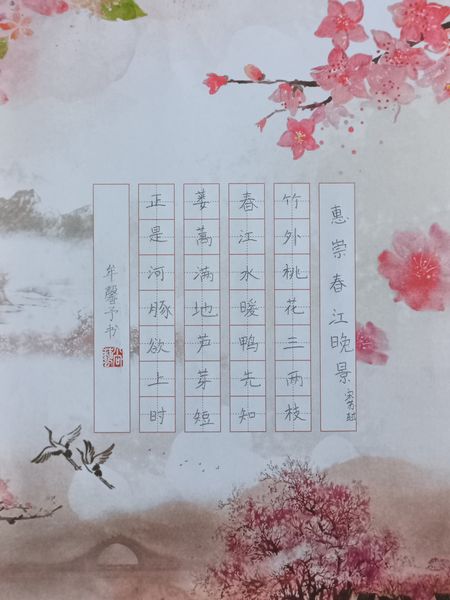 惠崇春江晚景 宋苏轼
竹外桃花三两枝
春江水暖鸭先知
蒌蒿满地芦芽短
正是河豚欲上时
牟馨予书